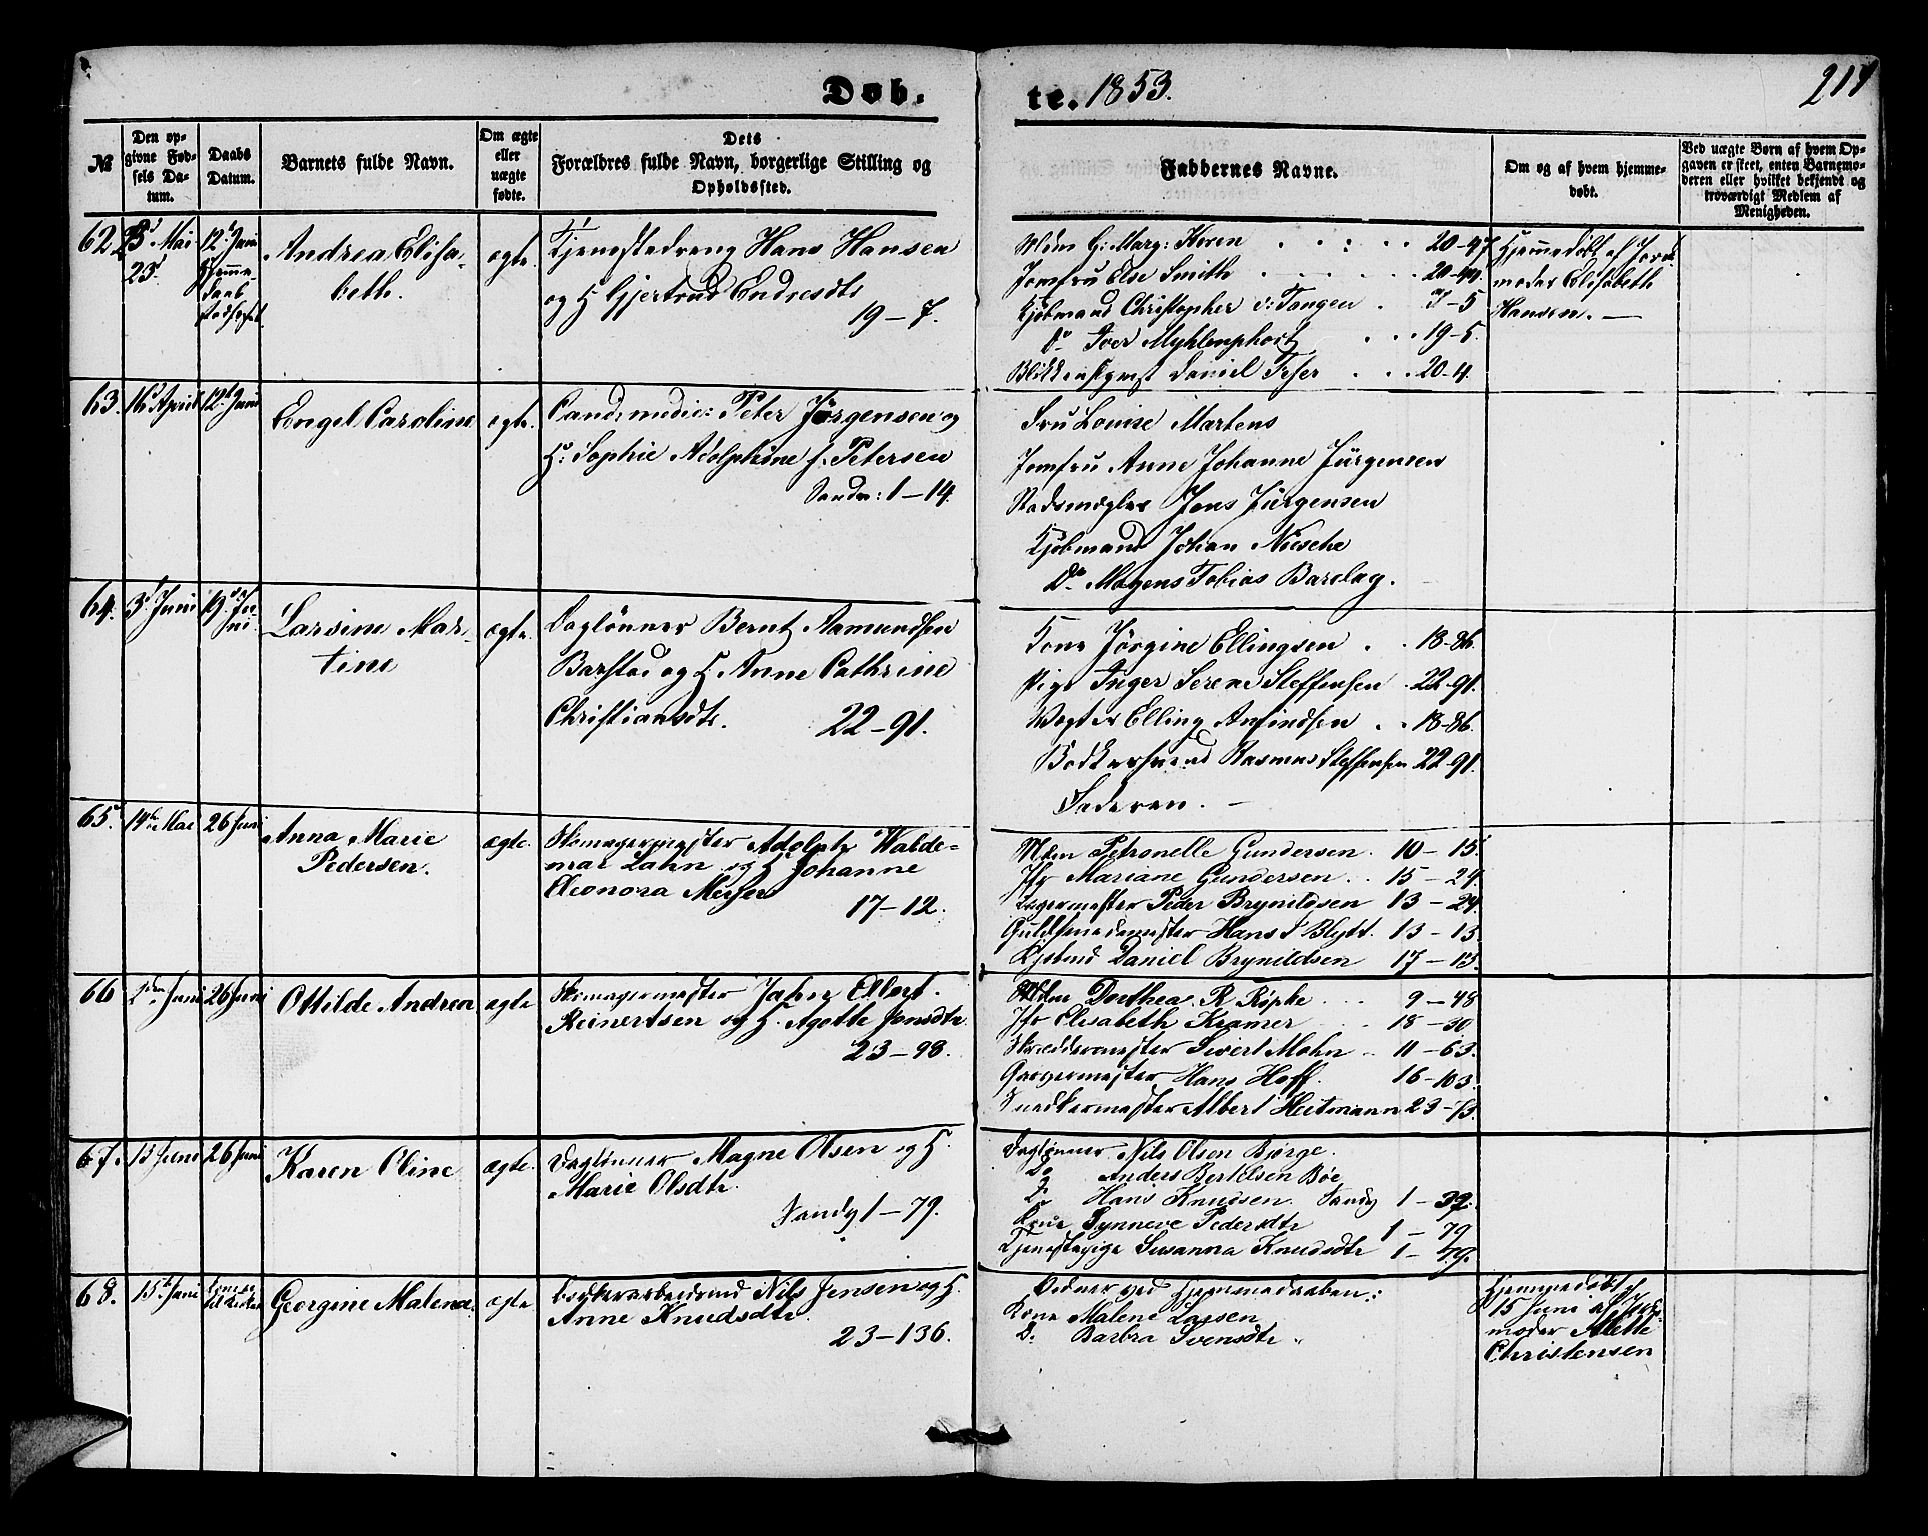 Døb-
te. 1853.
№
Den op-
givne Fød-
sels Da-
tum.
Daabs
Datum.
Barnets fulde Navn.
Om ægte
eller
uægte
fødte.
Dets
Forældres fulde Navn, borgerlige Stilling og
Opholdssted.
Faddernes Navne.
Om og af hvem hjemme-
døbt.
Ved uægte Børn af hvem Op-
gaven er skeet, enten Barnemo-
deren eller hvilket bekjendt og
troværdigt Medlem af
Menigheden.
62. Mai
12t Juni
Hjemme-
daab
stadfæstet
Andrea Elisa-
beth.
ægte.
Tjenestedreng Hans Hansen
og H Gjertrud Endresdtr
19-7.
Mdm G: Marg: Koren 20-47
Jomfru Else Smith
Kjøbmand Christopher v: Tangen
Do Iver Myhlenphort 19-5.
Daniel 20-4.
Hjemmedøbt af Jord-
moder Elisabeth
Hansen.
63. 16 April 12t Juni
Engel Caroline
ægte.
Cand. medic: Peter Jörgensen og
H: Sophie Adolphine f. Petersen
Sandv: 1-14.
Fru Louise Martens
Jomfru Anne Johanne Jürgensen
Stadsmægler Jens Jürgensen
Kjøbmand Johan
Do Mogens Tobias Barclay.
64. 3d Juni 19. Ju-
ni
Larsine Mar-
tine
ægte.
Daglönner Bernt Aamundsen
Barstad og H. Anne Cathrine
Christiansdtr. 22-91.
Kone Jörgine Ellingsen 18-86.
Pige Inger Serene Steffensen 22-91.
Vægter Elling Anfindsen 18-86.
Bödkersvend Rasmus Steffensen 22-91.
Faderen.
65. 14de Mai 26 Juni
Anna Marie
Pedersen.
ægte.
Skomagermester Adolph Walde-
mar Lahn og H Johanne
Eleonora Meyer
17-12.
Mdm Petronelle Gundersen. 10-15.
Jfr Mariane Gundersen 15-24.
Peder Brynildsen 13-24.
Guldsmedmester Hans Blytt. 13-13.
Daniel Brynildsen 17-13.
66 Juni 26 Juni
Ottilde Andrea
ægte
Skomagermester Elert
Reinertsen og H. Agathe Jonsdtr.
23-98.
Mdm Dorthea R Ripke 9-48
Jfr Elisabeth Kramer 18-30.
Skræddermester Sivert Mohn 11-63.
Garvermester Hans Hoff. 16-103.
Snedkermester Albert Heitmann 23-73.
67. 13 Juni 26 Juni
Karen Oline
ægte.
Daglønner Magne Olsen og H.
Marie Olsdtr.
Sandv 1-79.
Daglønner Nils Olsen Bjørge.
Do Anders Bertelsen Bøe
Do Hans Knudsen Sandv 1-39.
Kone Synneve Pedersdtr 1-79
Tjenestepige Susanna Knudsdtr 1-79.
68. 15t Juni
Georgine Malena.
ægte
Bødkerarbeidsmd Nils Jensen og H.
Anne Knudsdtr.
23-136.
Vidner ved Hjemmedaaben:
Kone Malene Larsen
Do Barbra Svensdtr
Hjemmedøbt d
15 Juni af Jord-
moder Mette
Christensen